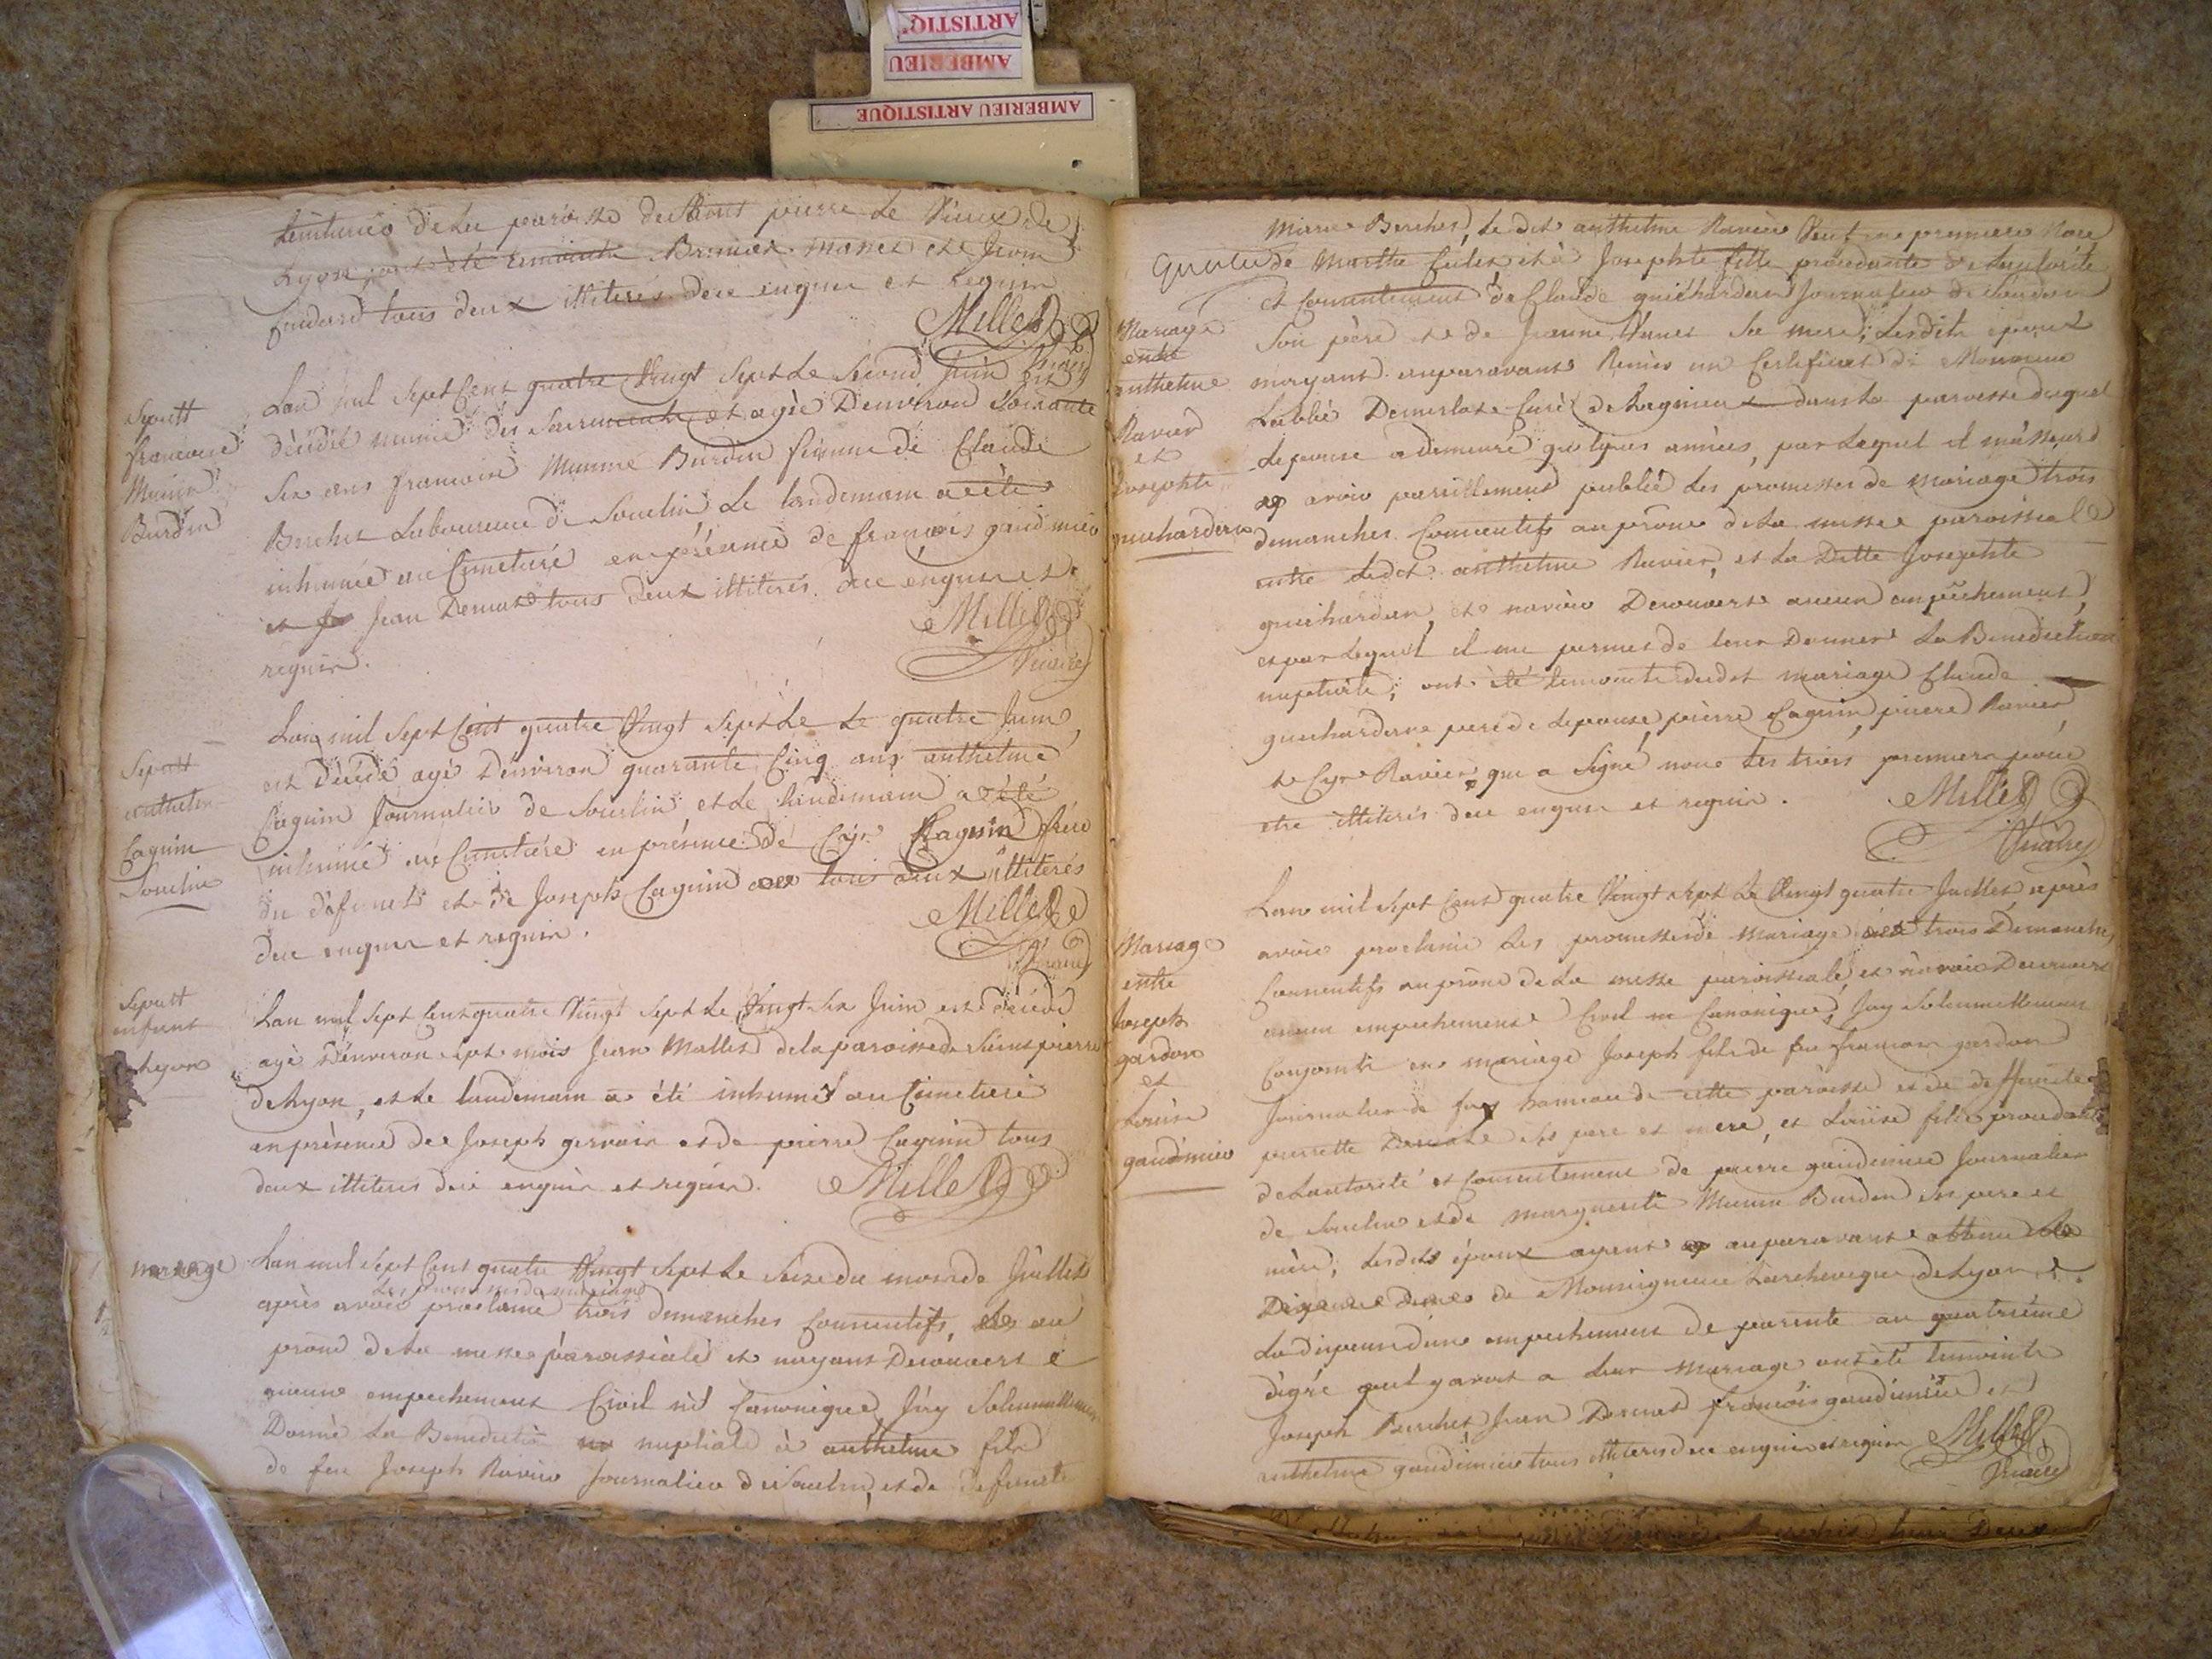 ARTISTIQ
AMBERIEU
AMBERIEU ARTISTIQUE
de la paroisse de Saint pierre Le Vieux de
Lyon, ont été temoints Bremier et Jean
tous deux illiterés de ce enquis et requis
Millet
Lan mil Sept Cent quatre Vingt Sept Le Second Juin est
décédé munie des Sacrements et agée Denviron Soixante
Six ans francoise Munier Burdin femme de Claude
Berchet Laboureur de Souclin Le landemain a été
inhumée au Cimetiere en présence de francois gaudmier
et Jean Demas tous deux illiterés de ce enquis et
requis.
Millet
Vicaire
Sepult
francoise
Munier
Burdin
Lan mil Sept Cent quatre Vingt Sept Le Le quatre Juin
est décédé agé Denviron quarante Cinq ans anthelme
Caguin Journalier de Souclin et Le landemain a été
inhumé au Cimetiere en présence de Cyr Caguin frere
du défunt et de Joseph Caguin tous deux illiterés
de ce enquis et requis.
Millet
Vicaire
Sepult
anthelm
Caguin
Souclin
Lan mil Sept Cent quatre Vingt Sept Le Vingt Six Juin est décédé
agé Denviron Sept mois Jean Mallet de la paroisse de Saint pierre
de Lyon, et Le landemain a été inhumé au Cimetiere
en présence de Joseph gervais et de pierre Caguin tous
deux illiteres de ce enquis et requis.
Millet
Sepult
enfant
Lyon
mariage
Lan mil Sept Cent quatre Vingt Sept Le Seize du mois de Juillet
Les promesses de mariage
après avoir proclamé trois dimanches Consecutifs, au
prone de La messe paroissiale et nayant Decouvert
aucune empechement Civil ni Canonique, Jay Solennellement
Donné La Benediction nuptiale à anthelme fils
de feu Joseph Ravier Journalier de Souclin, et de defunte
Marie Berchet, Le dit anthelme Ravier Veuf en premiere Noce
de Marthe et à Josephte fille procedante de Lautorité
et Consentement de Claude guichardon Journalier de Souclin
Son père et de Jeanne Sa mere; Lesdits epoux
mayant auparavant Remis un Certificat de Monsieur
Labbé Demerloz Curé de Lagnieu dans La paroisse duquel
Lepouse a demeuré quelques années, par Lequel il massure
avoir pareillement publié Les promesses de mariage trois
dimanches Consecutifs au prône de La messe paroissiale
entre Ledit anthelme Ravier, et La Ditte Josephte
guichardon, et navoir Decouvert aucun empêchement,
et par Lequel il me permet de leur Donner La Benediction
nuptiale; ont été temoints dudit mariage Claude
guichardon pere de Lepouse, pierre Caguin, pierre Ravier
et Cyr Ravier qui a Signé non Les trois premiers pour
etre illiterés de ce enquis et requis.
Millet
Vicaire
Mariage
entre
anthelme
Ravier
et
Josephte
guichardon
Lan mil Sept Cent quatre Vingt Sept Le Vingt quatre Juillet après
avoir proclamé Les promesses de mariage trois Dimanches
Consecutifs au prône de La messe paroissiale, et navoir Decouvert
aucun empechement Civil ni Canonique, Jay Solennellement
Conjoints en mariage Joseph fils de feu francois gardon
Journalier de hameau de cette paroisse et de defunte
pierrette Ses pere et mere, et Louise fille procedante
de Lautorité et Consentement de pierre gaudmier Journalier
de Souclin et de Marguerite Munier Burdin Ses pere et
mere; Lesdits époux ayant auparavant obtenu
de Monseigneur Larcheveque de Lyon
La dispense dune empechement de parenté au quatrieme
degré quil y avoit a Leur mariage ont été temoints
Joseph Berchet Jean Demas francois gaudmier et
anthelme gaudmier tous illiteres de ce enquis et requis
Millet
Vicaire
Mariage
entre
Joseph
gardon
et
Louise
gaudmier